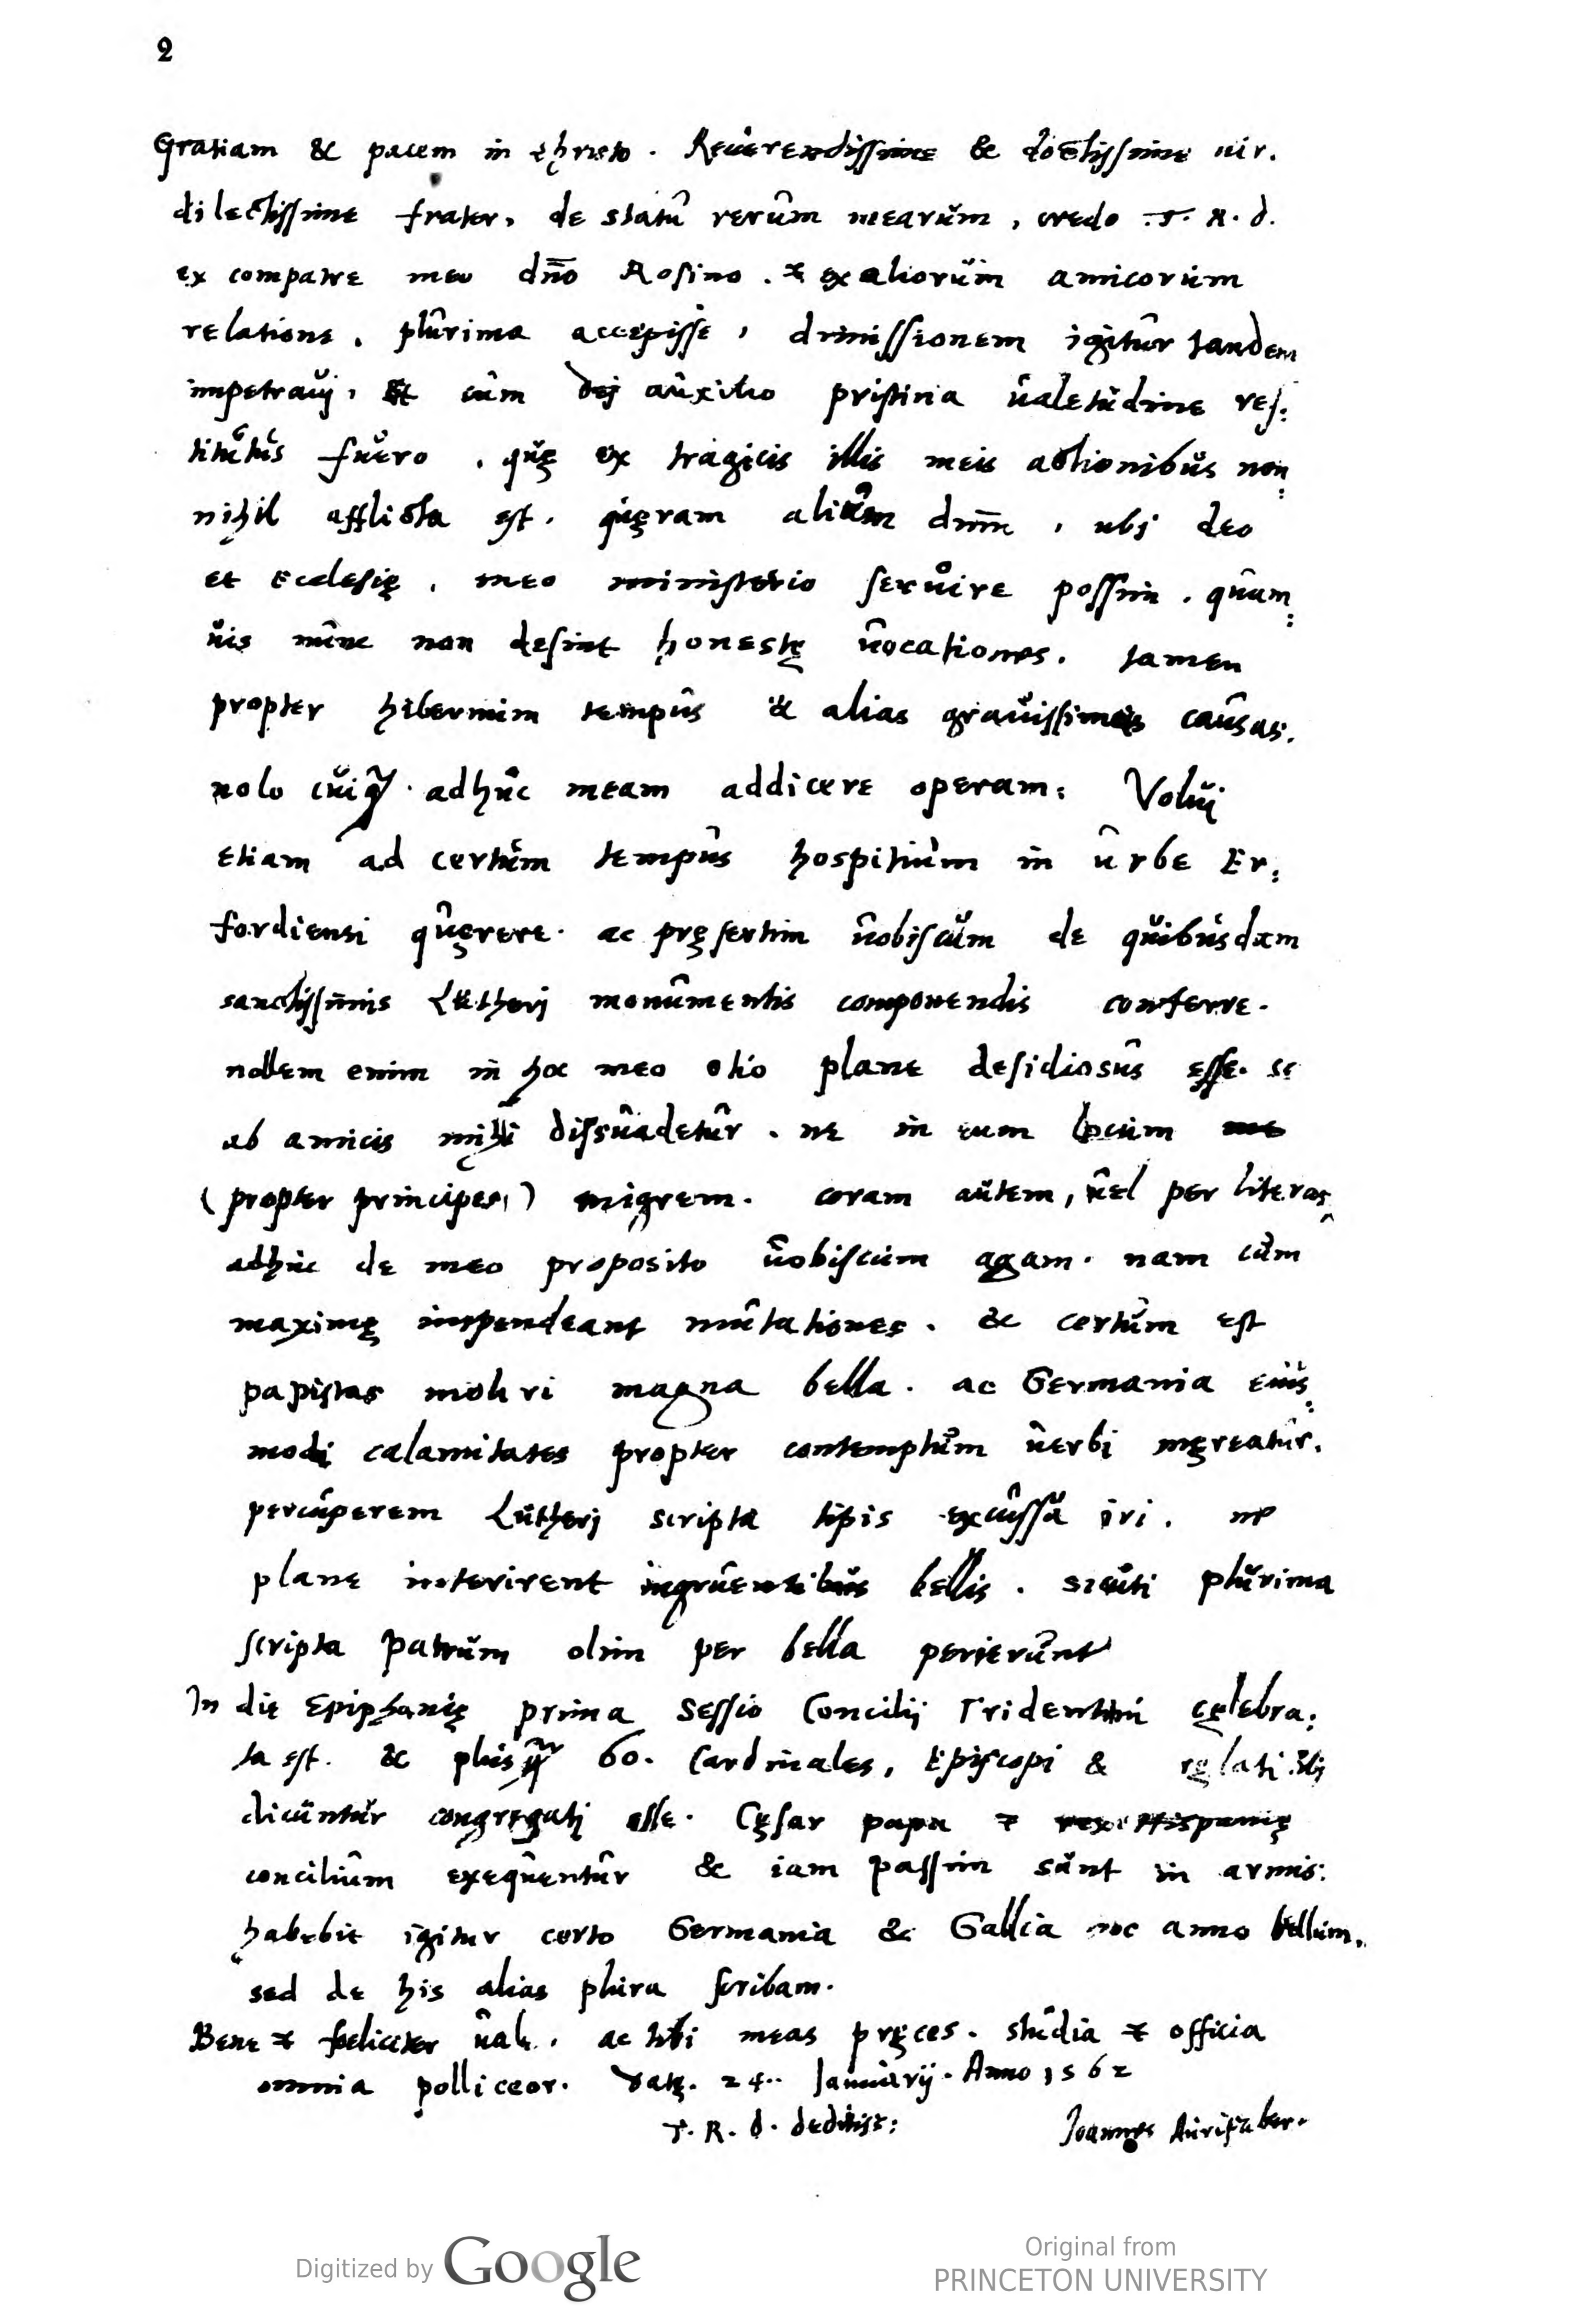 2
Gratiam & pacem in Christo. Reuerendissime & doctissime uir.
dilectissime frater, de statu rerum mearum, credo T. R. d.
ex compatre meo dño Rosino. & ex aliorum amicorum
relatione. plurima accepisse, dimissionem igitur tandem
impetrauj, Et cum dej auxilio pristina ualetudine res:
titutus fuero. quę ex tragicis illis meis actionibus non:
nihil afflicta est. quęram alium dnm̄, ubj deo
et Ecclesię, meo ministerio seruire possim. quam:
uis nunc non desint honestę uocationes. tamen
propter hibernum tempus & alias grauissimas causas.
nolo cuiq́ adhuc meam addicere operam: Voluj
etiam ad certum tempus hospitium in urbe Er:
fordiensi quęrere. ac pręsertim uobiscum de quibusdam
sanctissimis Lutherj monumentis componendis conferre.
nollem enim in hoc meo otio plane desidiosus esse. se
ab amicis mihi dissuadetur. ne in eum locum
(propter principes) migrem. coram autem, uel per literas
adhuc de meo proposito uobiscum agam. nam cum
maximę impendeant mutationes. & certum est
papistas moturi magna bella. ac Germania eius:
modi calamitates propter contemptum uerbi męreatur.
percuperem Lutherj scripta tipis excussa iri. ne
plane interirent ingruentibus bellis. sicuti plurima
scripta patrum olim per bella perierunt
In die Epiphanię prima Sessio Concilij Tridentini cęlebra:
ta est. & plus q̄ 60. Cardinales, Episcopi &
dicuntur congregatj esse. Cęsar papa & rex Hispanię
concilium exequentur & iam passim sunt in armis:
habebit igitur certo Germania & Gallia hoc anno bellum.
sed de his alias plura scribam.
Bene & foeliciter uale. ac tibi meas pręces. studia & officia
omnia polliceor. Datę. 24. Januarij. Anno 1562
T. R. d. deditiss:
Joannes Aurifaber.
Digitized by Google
Original from
PRINCETON UNIVERSITY